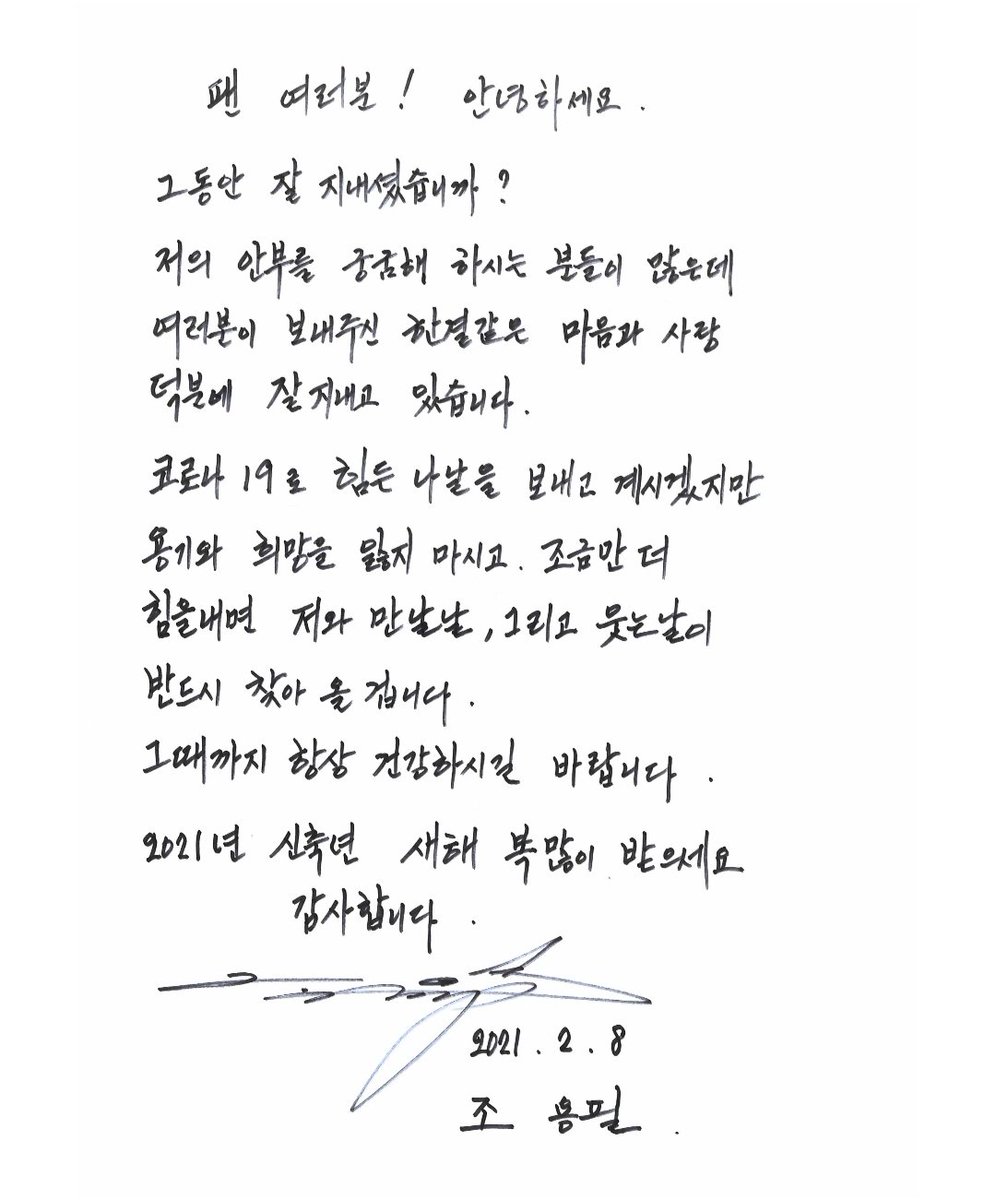 팬 여러분! 안녕하세요.
그동안 잘 지내셨습니까?
저의 안부를 궁굼해 하시는 분들이 많은데
여러분이 보내주신 한결같은 마음과 사랑
덕분에 잘 지내고 있습니다.
코로나 19로 힘든 나날을 보내고 계시겠지만
용기와 희망을 잃지 마시고. 조금만 더
힘을내면 저와 만날날, 그리고 웃는날이
반드시 찾아 올 겁니다.
그때까지 항상 건강하시길 바랍니다.
2021년 신축년 새해 복많이 받으세요
감사합니다.
2021. 2. 8
조 용필.